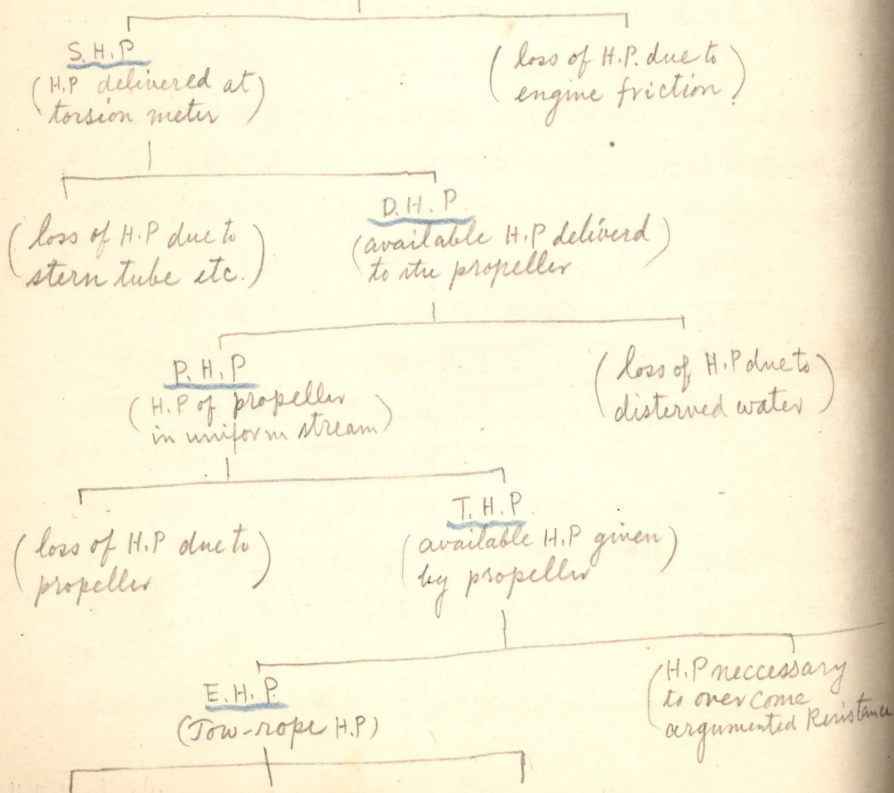 S.H.P
(H.P delivered at
torsion meter)
(loss of H.P. due to
engine friction)
(loss of H.P due to
stern tube etc.)
D.H.P.
(available H.P deliverd
to the propeller)
P.H.P
(H.P of propeller
in uniform stream)
(loss of H.P due to
disterved water)
(loss of H.P due to
propeller)
T.H.P.
(available H.P given
by propeller)
E.H.P.
(Tow-rope H.P)
(H.P neccessary
to overcome
argumented Resistance